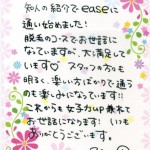 知人の紹介でeaseに
通い始めました!
脱毛のコースでお世話に
なっていますが、大満足して
います♡ スタッフの方も
明るく、楽しい方ばかりで通う
のも楽しみになています!!
これからも女子力up兼ねて
お世話になります! いつも
ありがとうございます。